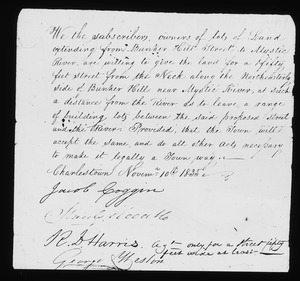 We the subscribers, owners of lots of Land
extending from Bunker Hill Street to Mystic
River, are willing to give the land for a fifty
feet street from the Neck along the Northeasterly
side of Bunker Hill near Mystic River, at such
a distance from the River as to leave a range
of building lots between the said proposed street
and the River. Provided, that the Town will
accept the same, and do all other acts necessary
to make it legally a Town way.
Charlestown Novemr 10th 1835.
Jacob Goggin
R. D. Harris. agt only for a street fifty
feet wide at least
George Weston